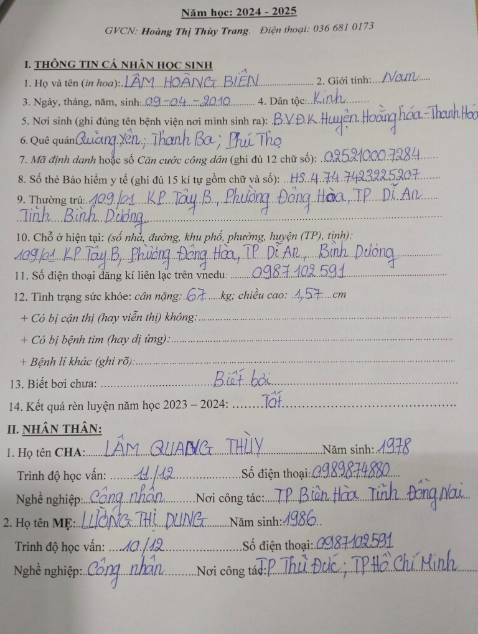 Năm học: 2024 - 2025
GVCN: Hoàng Thị Thùy Trang Điện thoại: 036 681 0173
I. THÔNG TIN CÁ NHÂN HỌC SINH
1. Họ và tên (in hoa): LÂM HOÀNG BIÊN 2. Giới tính: Nam
3. Ngày, tháng, năm, sinh: 09-04-2010 4. Dân tộc: Kinh
5. Nơi sinh (ghi đúng tên bệnh viện nơi mình sinh ra): B.V.Đ.K Huyện Hoằng hóa - Thanh Hoá
6. Quê quán Quảng Yên; Thanh Ba; Phú Thọ
7. Mã định danh hoặc số Căn cước công dân (ghi đủ 12 chữ số): 025210007284
8. Số thẻ Bảo hiểm y tế (ghi đủ 15 kí tự gồm chữ và số): HS.4.74.7423225207
9. Thường trú: 109/01 KP Tây B, Phường Đông Hòa, TP Dĩ An
Tỉnh Bình Dương
10. Chỗ ở hiện tại: (số nhà, đường, khu phố, phường, huyện (TP), tỉnh):
109/01 KP Tây B, Phường Đông Hòa, TP Dĩ An, Bình Dương
11. Số điện thoại đăng kí liên lạc trên vnedu: 0987102591
12. Tình trạng sức khỏe: cân nặng: 67 kg; chiều cao: 1,57 cm
+ Có bị cận thị (hay viễn thị) không:
+ Có bị bệnh tim (hay dị ứng):
+ Bệnh lí khác (ghi rõ):
13. Biết bơi chưa: Biết bơi
14. Kết quả rèn luyện năm học 2023 - 2024: Tốt
II. NHÂN THÂN:
1. Họ tên CHA: LÂM QUANG THÙY Năm sinh: 1978
Trình độ học vấn: 11/12 Số điện thoại: 0989874880
Nghề nghiệp: Công nhân Nơi công tác: TP Biên Hòa Tỉnh Đồng Nai
2. Họ tên MẸ: LƯƠNG THỊ DUNG Năm sinh: 1986
Trình độ học vấn: 10/12 Số điện thoại: 0987102591
Nghề nghiệp: Công nhân Nơi công tác: TP Thủ Đức; TP Hồ Chí Minh